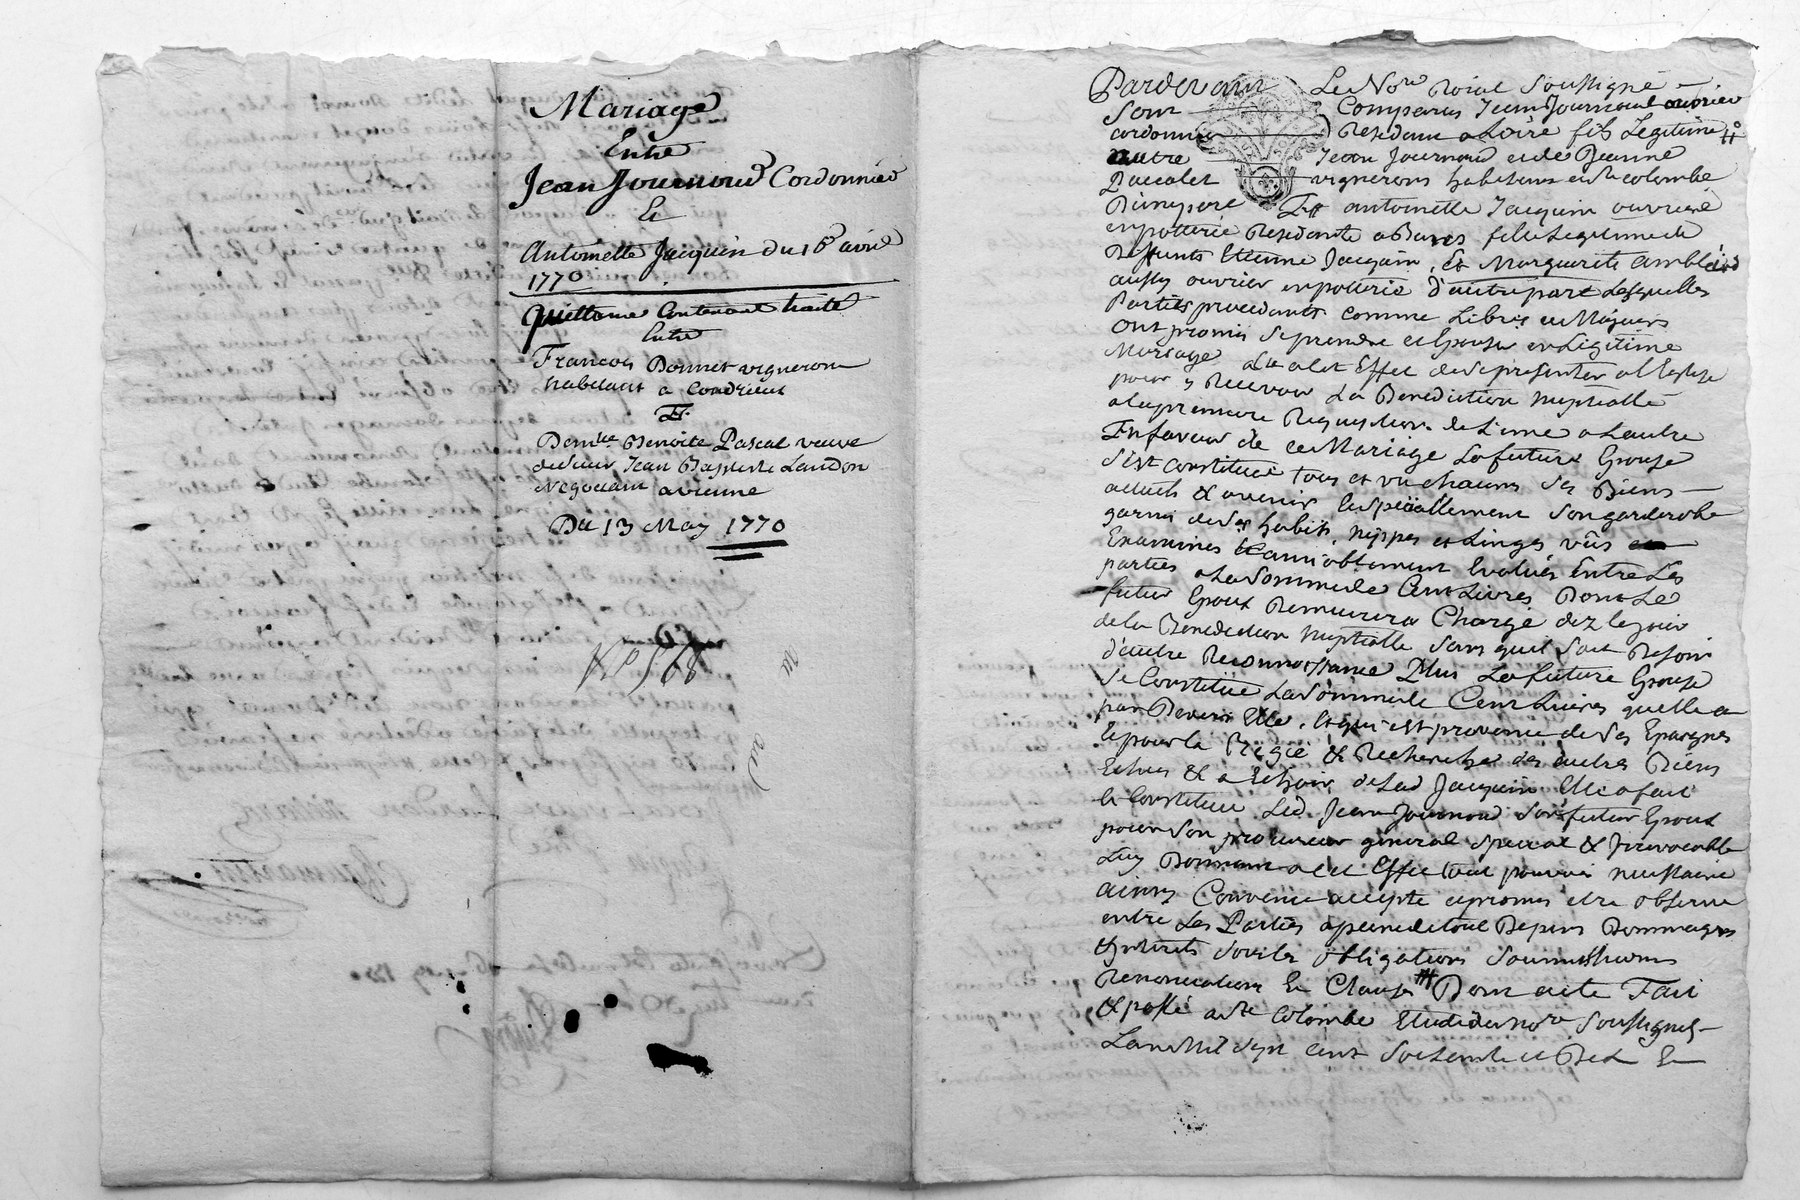 Mariage
Entre
Jean Journoud Cordonnier
Et
Antoinette Jacquin du 16 avril
1770
Quittance Contenant traité
Entre
Francois Bonnet vigneron
habitant a Condrieux
Et
Demlle Benoite Pascal veuve
du sieur Jean Baptiste Landon
Negociant a vienne
Du 13 May 1770
Pardevant Le Nore Roial Soussigné
Sont Comparus Jean Journoud ouvrier
cordonnier Residant a Loire fils Legitime
autre Jean Journoud et de Jeanne
Paccalet vignerons habitans en Ste colombe
D'une part Et antoinette Jacquin ouvriere
en potterie Residante a fille Legitime de
Deffunts Etienne Jacquin, Et Marguerite
aussy ouvrier en potterie d'autre part Lesquelles
Parties procedants comme Libres et Majeurs
Ont promis se prendre et Epouser en Legitime
Mariage et a cet Effet de se presenter a l'Eglise
pour y Recevoir La Benediction Nuptialle
a la premiere Requisition de L'une a Lautre
En faveur de ce Mariage La future Epouse
s'est constituée tous et un chacuns ses Biens
actuels & avenir et speciallement son garderobe
garni de ses habits, nippes et Linges vûs
Examinés & amiablement Evalués Entre Les
parties a La somme de Cent Livres Dont Le
futur Epoux Demeurera Chargé dez le jour
de la Benediction Nuptialle sans quil soit Besoin
d'autre Reconnoissance Plus La future Epouse
se Constitue La somme de Cent Livres quelle a
par Devers Elle, et qui est provenue de ses Epargnes
Et pour la Regie & Recherche des autres Biens
Echus & a Echoir de Lad Jacquin Elle a fait
et Constitué Led. Jean Journoud son futur Epoux
pour son procureur general special & Irrevocable
Luy Donnant a cet Effet tout pouvoir necessaire
ainsy Convenu accepté et promis etre observé
entre Les Parties a peine de tout Depens Dommages
& interets sous les obligations soumissions
Renonciations Et Clauses Dont acte Fait
& passé a Ste Colombe Etude du nore soussigné
Lan Mil sept cent soixante et Dix Et